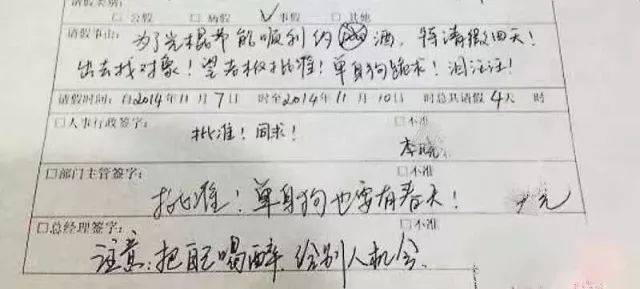 请假类别：
□ 公假 □ 病假 ☑ 事假 □ 其他
请假事由： 为了光棍节能顺利约酒，特请假四天！
出去找对象！望老板批准！单身狗跪求！泪汪汪！
请假时间：自2014年11月7日 时至2014年11月10日 时总共请假4天 时
□人事行政签字： □不准
批准！同求！ 李晓
□部门主管签字： □不准
批准！单身狗也要有春天！
□总经理签字： □不准
注意：把自己喝醉，给别人机会。